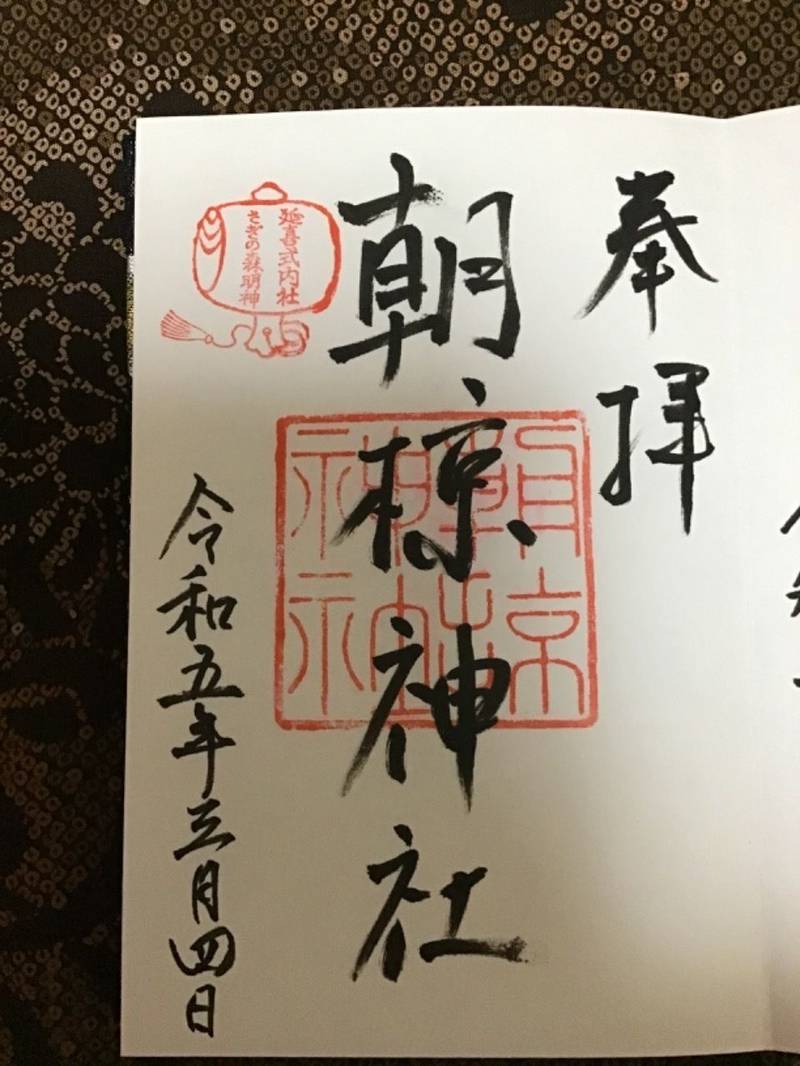 奉拝
朝椋神社
延喜式内社
さぎの森明神
令和五年三月四日